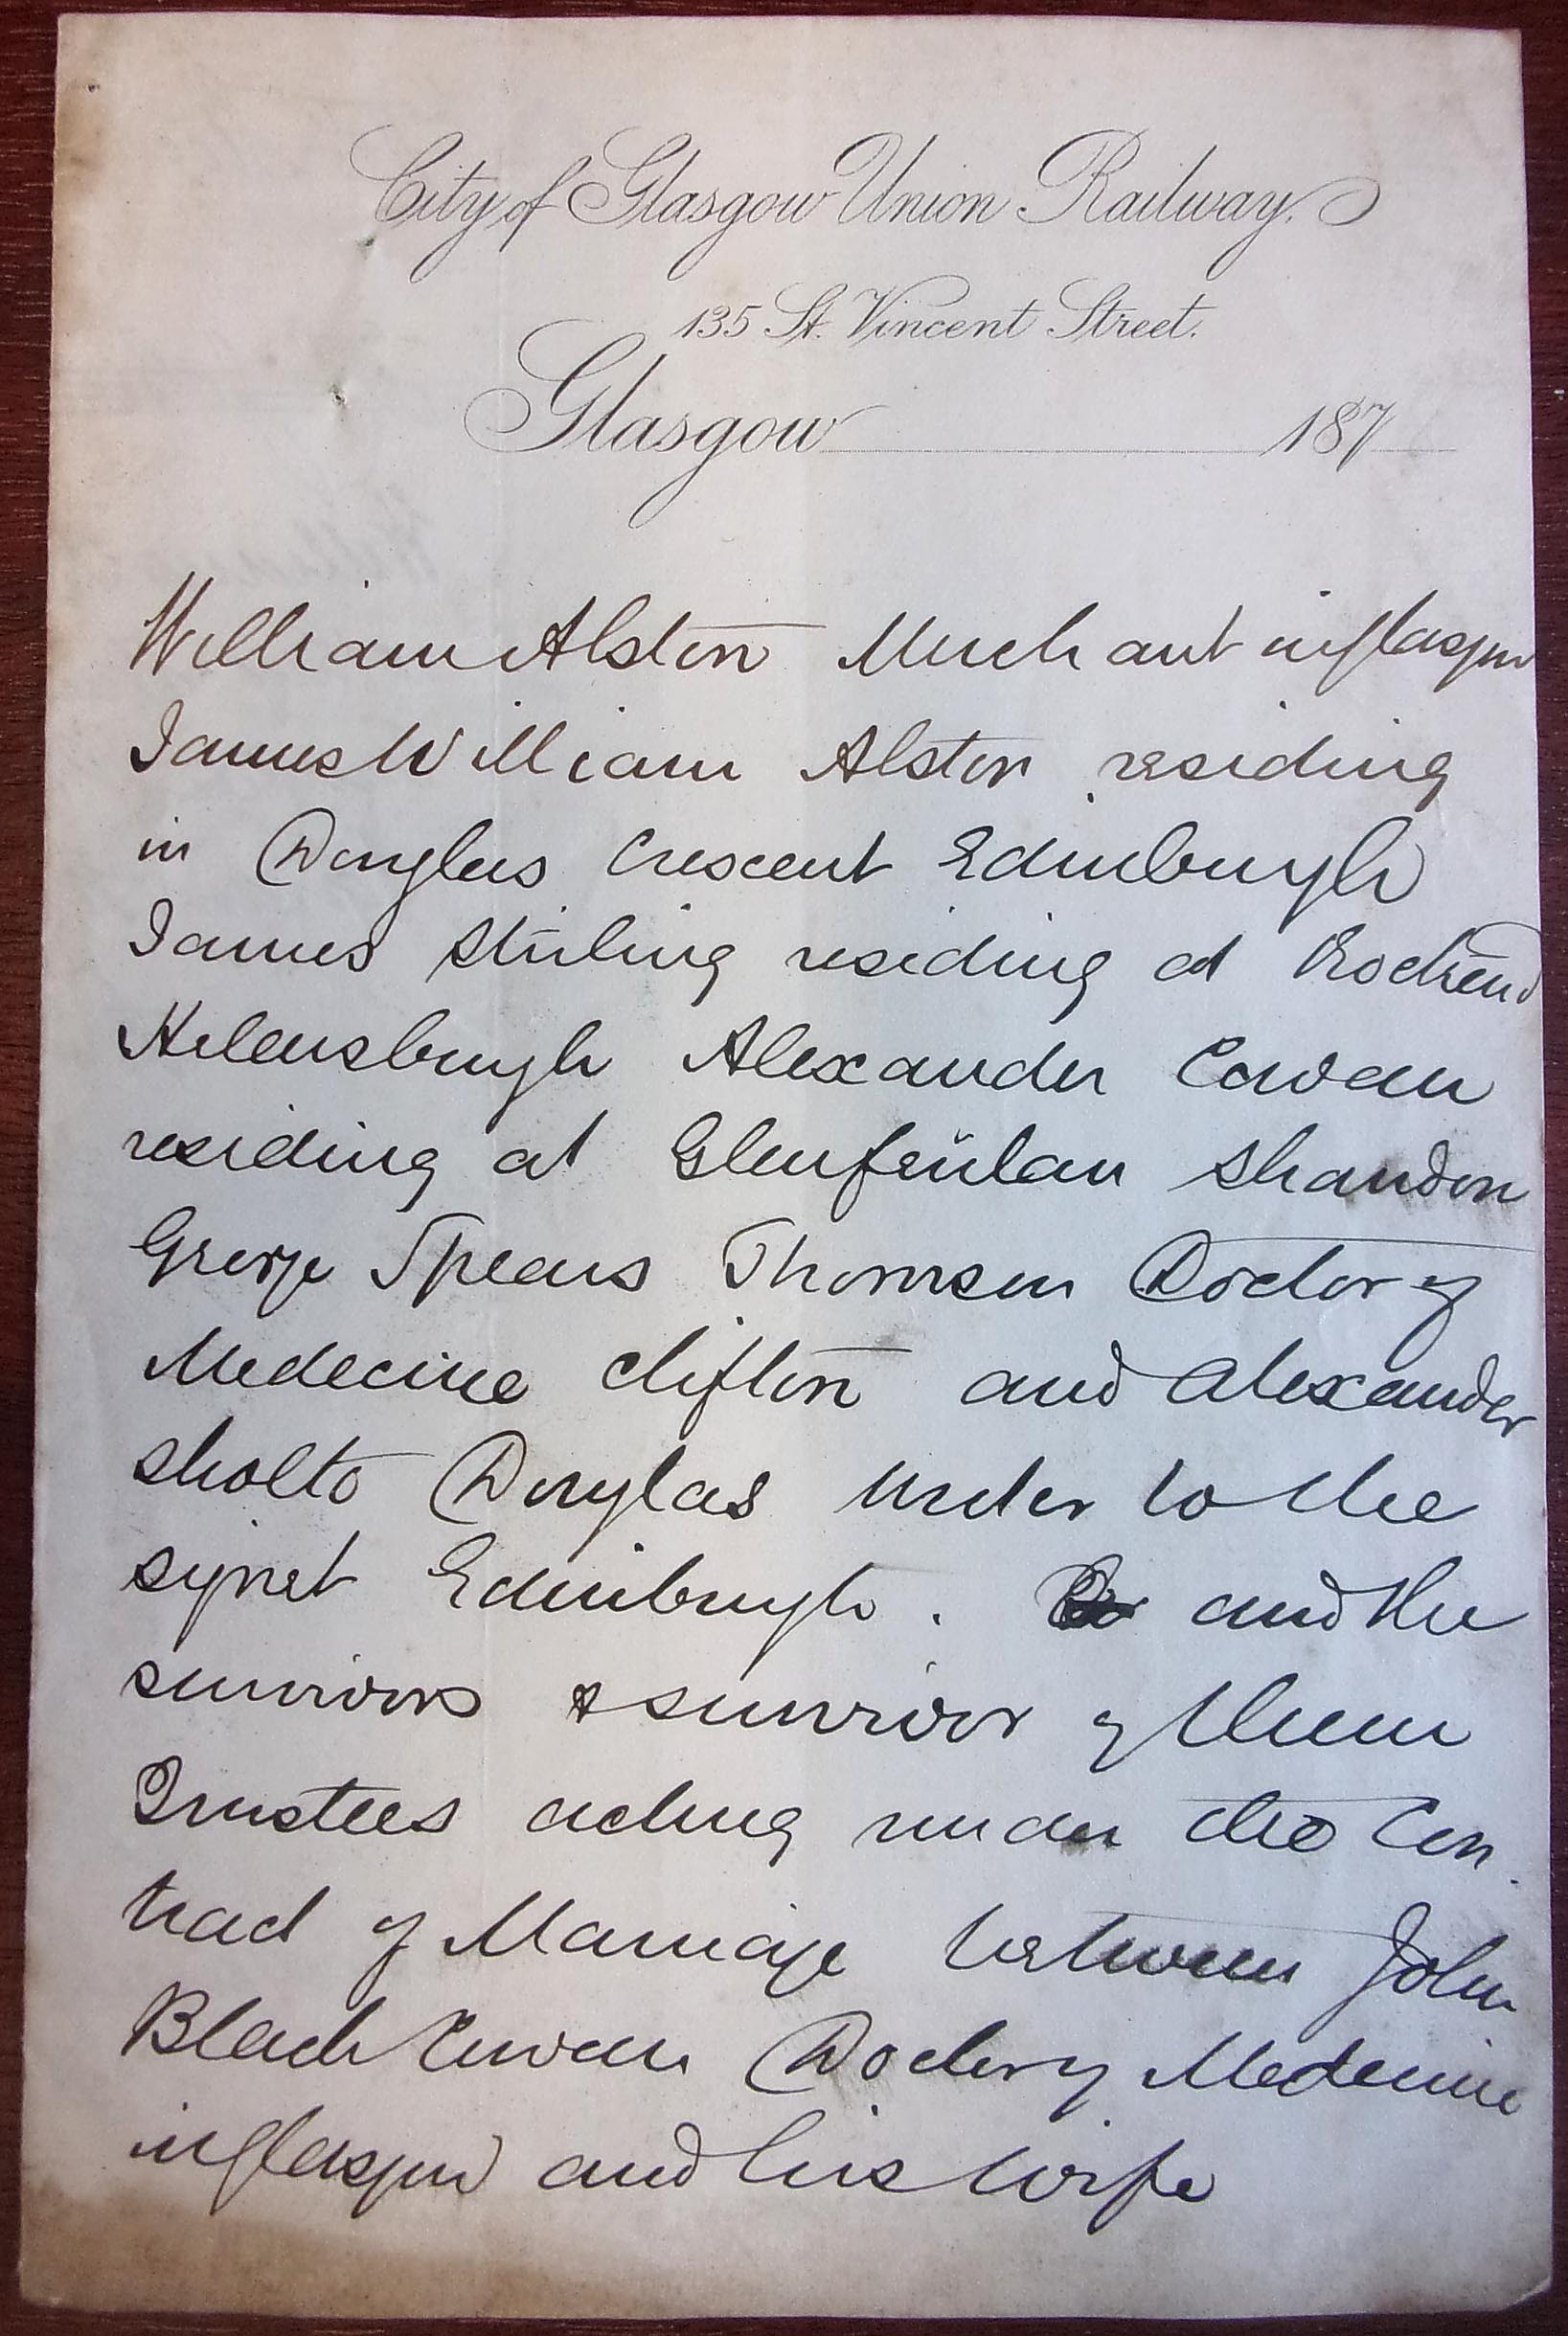 City of Glasgow Union Railway.
135 St. Vincent Street.
Glasgow 187
William Alston Merchant in Glasgow
James William Alston residing
in Douglas Crescent Edinburgh
James Stirling residing at Rockend
Helensburgh Alexander Cowan
residing at Glenfeulan Shandon
George Spears Thomson Doctor of
Medecine Clifton and Alexander
Sholto Douglas Writer to the
Signet Edinburgh. and the
survivors & survivor of them
Trustees acting under the Con
tract of Marriage between John
Black Cowan Doctor of Medecine
in Glasgow and his Wife